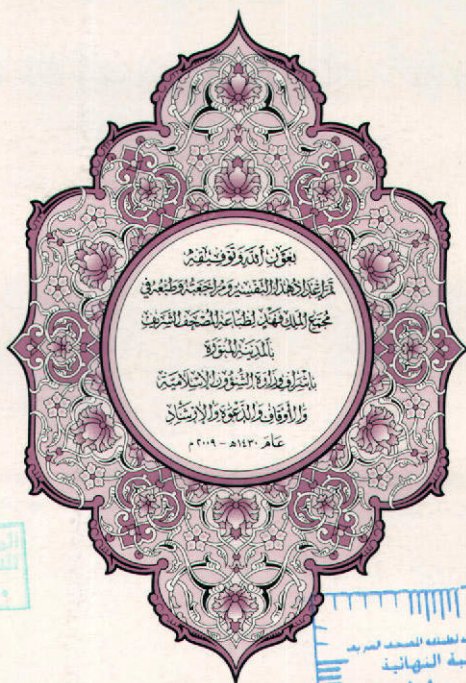 بِعَوْنِ ٱللَّهِ وَتَوْفِيقِهِ
تَمَّ إِعْدَادُ هٰذَا التَّفْسِيرِ وَمُرَاجَعَتُهُ وَطَبْعُهُ فِي
مُجَمَّعِ المَلِكِ فَهْدٍ لِطِبَاعَةِ المُصْحَفِ الشَّرِيفِ
بِالْمَدِينَةِ المُنَوَّرَةِ
بِإِشْرَافِ وِزَارَةِ الشُّؤُونِ الإِسْلَامِيَّةِ
وَالأَوْقَافِ وَالدَّعْوَةِ وَالإِرْشَادِ
عَامَ ١٤٣٠هـ - ٢٠٠٩م
لطباعة المصحف الشريف
النهائية